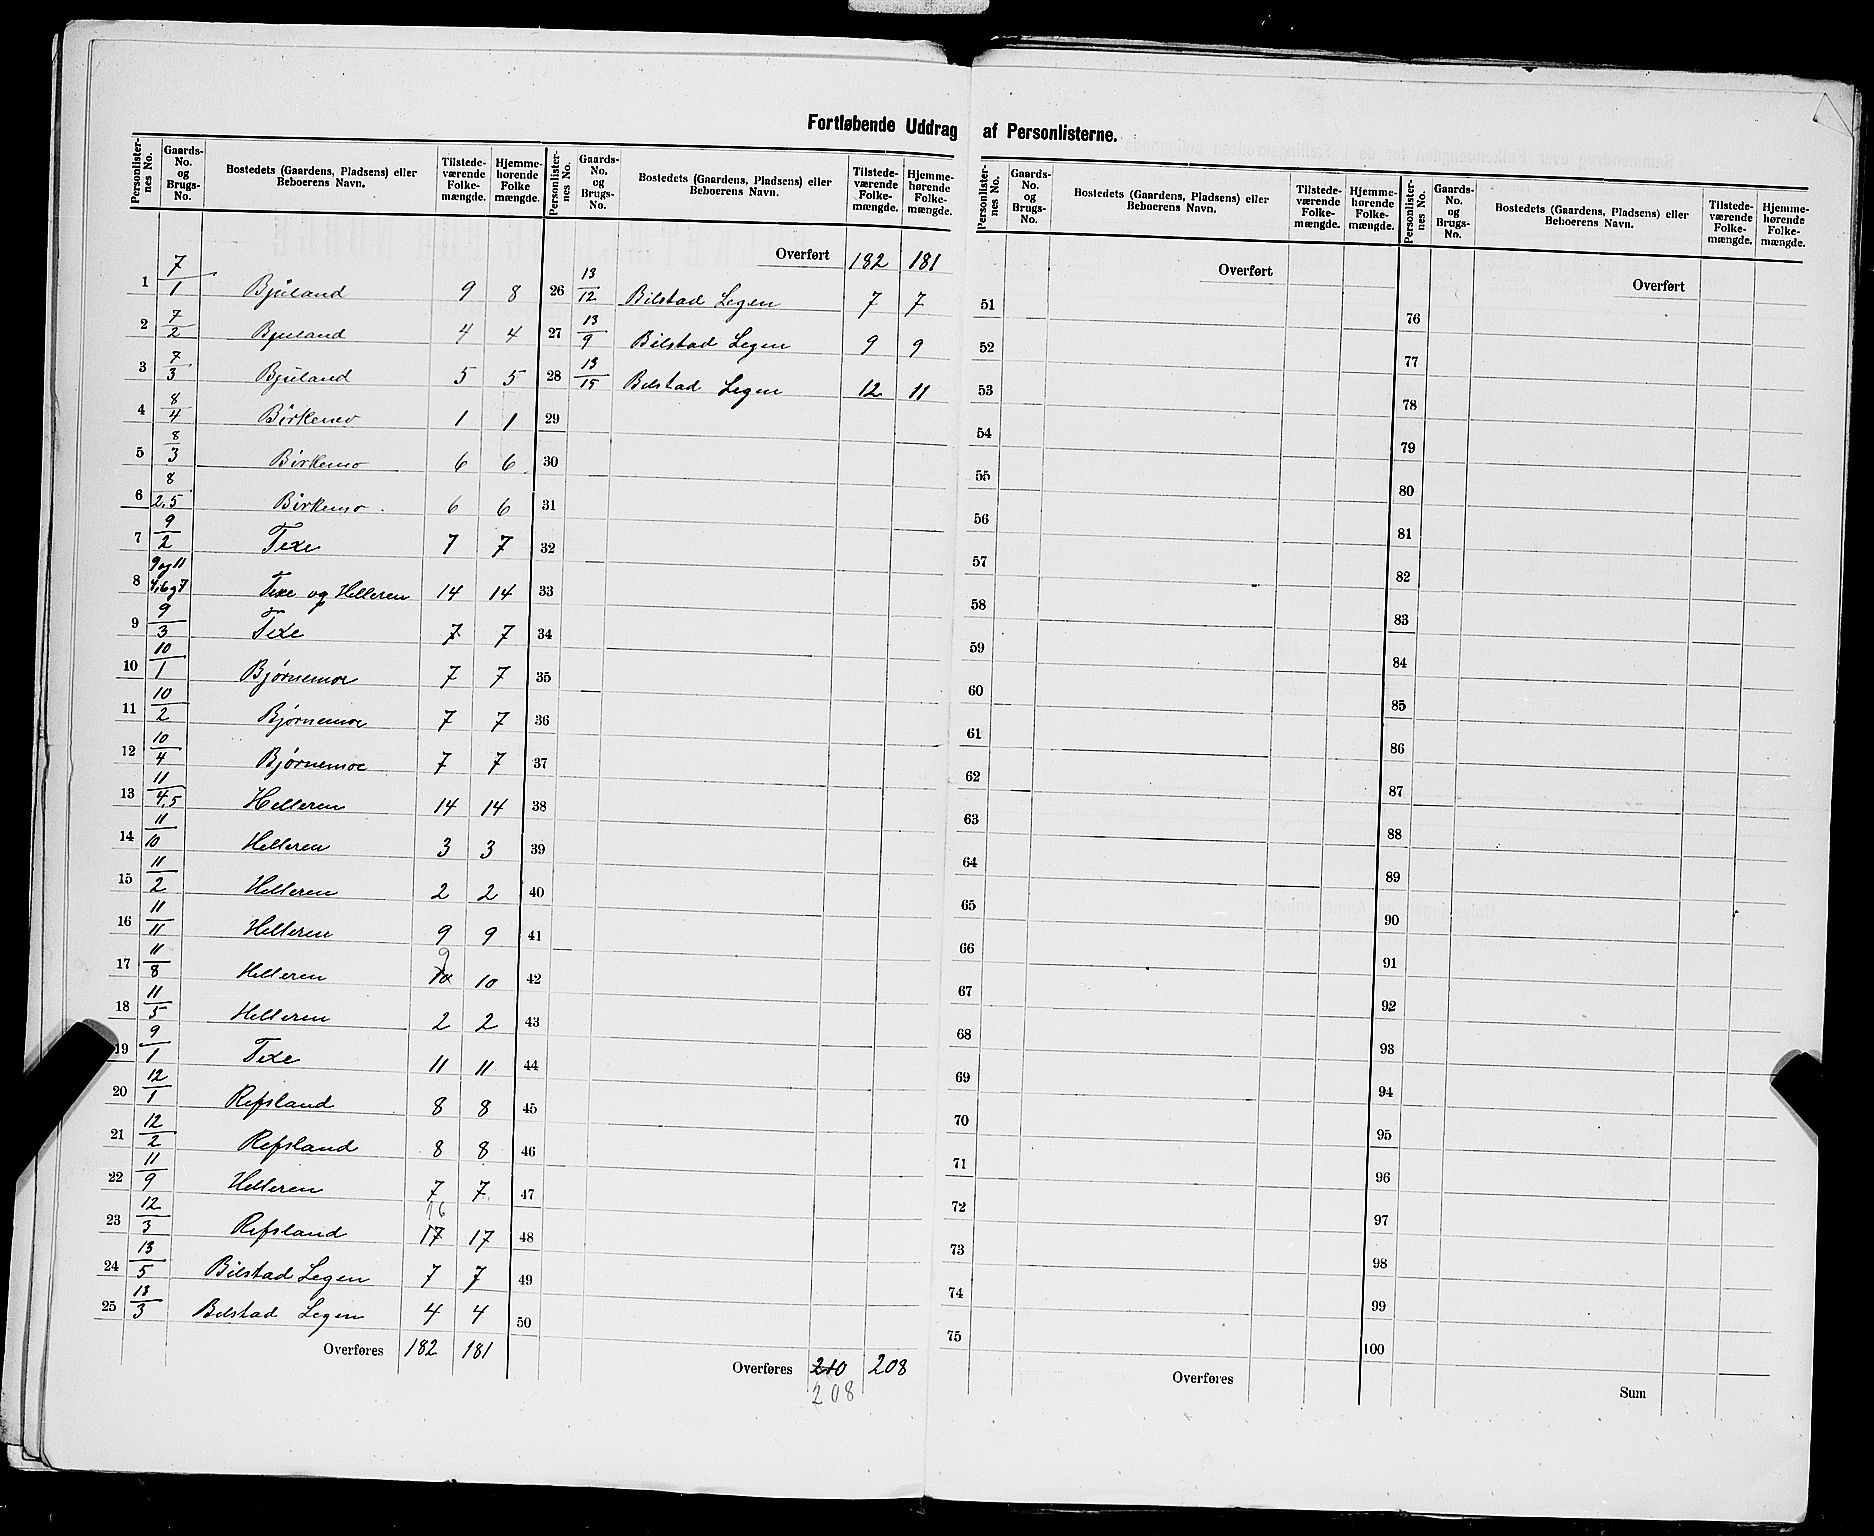 Fortløbende Uddrag af Personlisterne.
Personlister- nes No. | Gaards- No. og Brugs- No. | Bostedets (Gaardens, Pladsens) eller Beboerens Navn. | Tilstede- værende Folke- mængde. | Hjemme- hørende Folke mængde.
1 7/1 Bjuland 9 8
2 7/2 Bjuland 4 4
3 7/3 Bjuland 5 5
4 8/4 Birkemo 1 1
5 8/3 Birkemo 6 6
6 8/2,5 Birkemo 6 6
7 9/2 Texe 7 7
8 9 og 11 Texe og Helleren 14 14
9 9/3 Texe 7 7
10 10/1 Bjørnemoe 7 7
11 10/2 Bjørnemoe 7 7
12 10/4 Bjørnemoe 7 7
13 11/4,5 Helleren 14 14
14 11/10 Helleren 3 3
15 11/2 Helleren 2 2
16 11/11 Helleren 9 9
17 11/8 Helleren 10 9 10
18 11/5 Helleren 2 2
19 9/1 Texe 11 11
20 12/1 Refsland 8 8
21 12/2 Refsland 8 8
22 11/9 Helleren 7 7
23 12/3 Refsland 17 16 17
24 13/5 Bilstad Legen 7 7
25 13/3 Bilstad Legen 4 4
Overføres 182 181
Personlister- nes No. | Gaards- No. og Brugs- No. | Bostedets (Gaardens, Pladsens) eller Beboerens Navn. | Tilstede- værende Folke- mængde. | Hjemme- hørende Folke- mængde.
Overført 182 181
26 13/12 Bilstad Legen 7 7
27 13/9 Bilstad Legen 9 9
28 13/15 Bilstad Legen 12 11
29
30
31
32
33
34
35
36
37
38
39
40
41
42
43
44
45
46
47
48
49
50
Overføres 210 208
208
Personlister- nes No. | Gaards- No. og Brugs- No. | Bostedets (Gaardens, Pladsens) eller Beboerens Navn. | Tilstede- værende Folke- mængde. | Hjemme- hørende Folke- mængde.
Overført
51
52
53
54
55
56
57
58
59
60
61
62
63
64
65
66
67
68
69
70
71
72
73
74
75
Overføres
Personlister- nes No. | Gaards- No. og Brugs- No. | Bostedets (Gaardens, Pladsens) eller Beboerens Navn. | Tilstede- værende Folke- mængde. | Hjemme- hørende Folke- mængde.
Overført
76
77
78
79
80
81
82
83
84
85
86
87
88
89
90
91
92
93
94
95
96
97
98
99
100
Sum